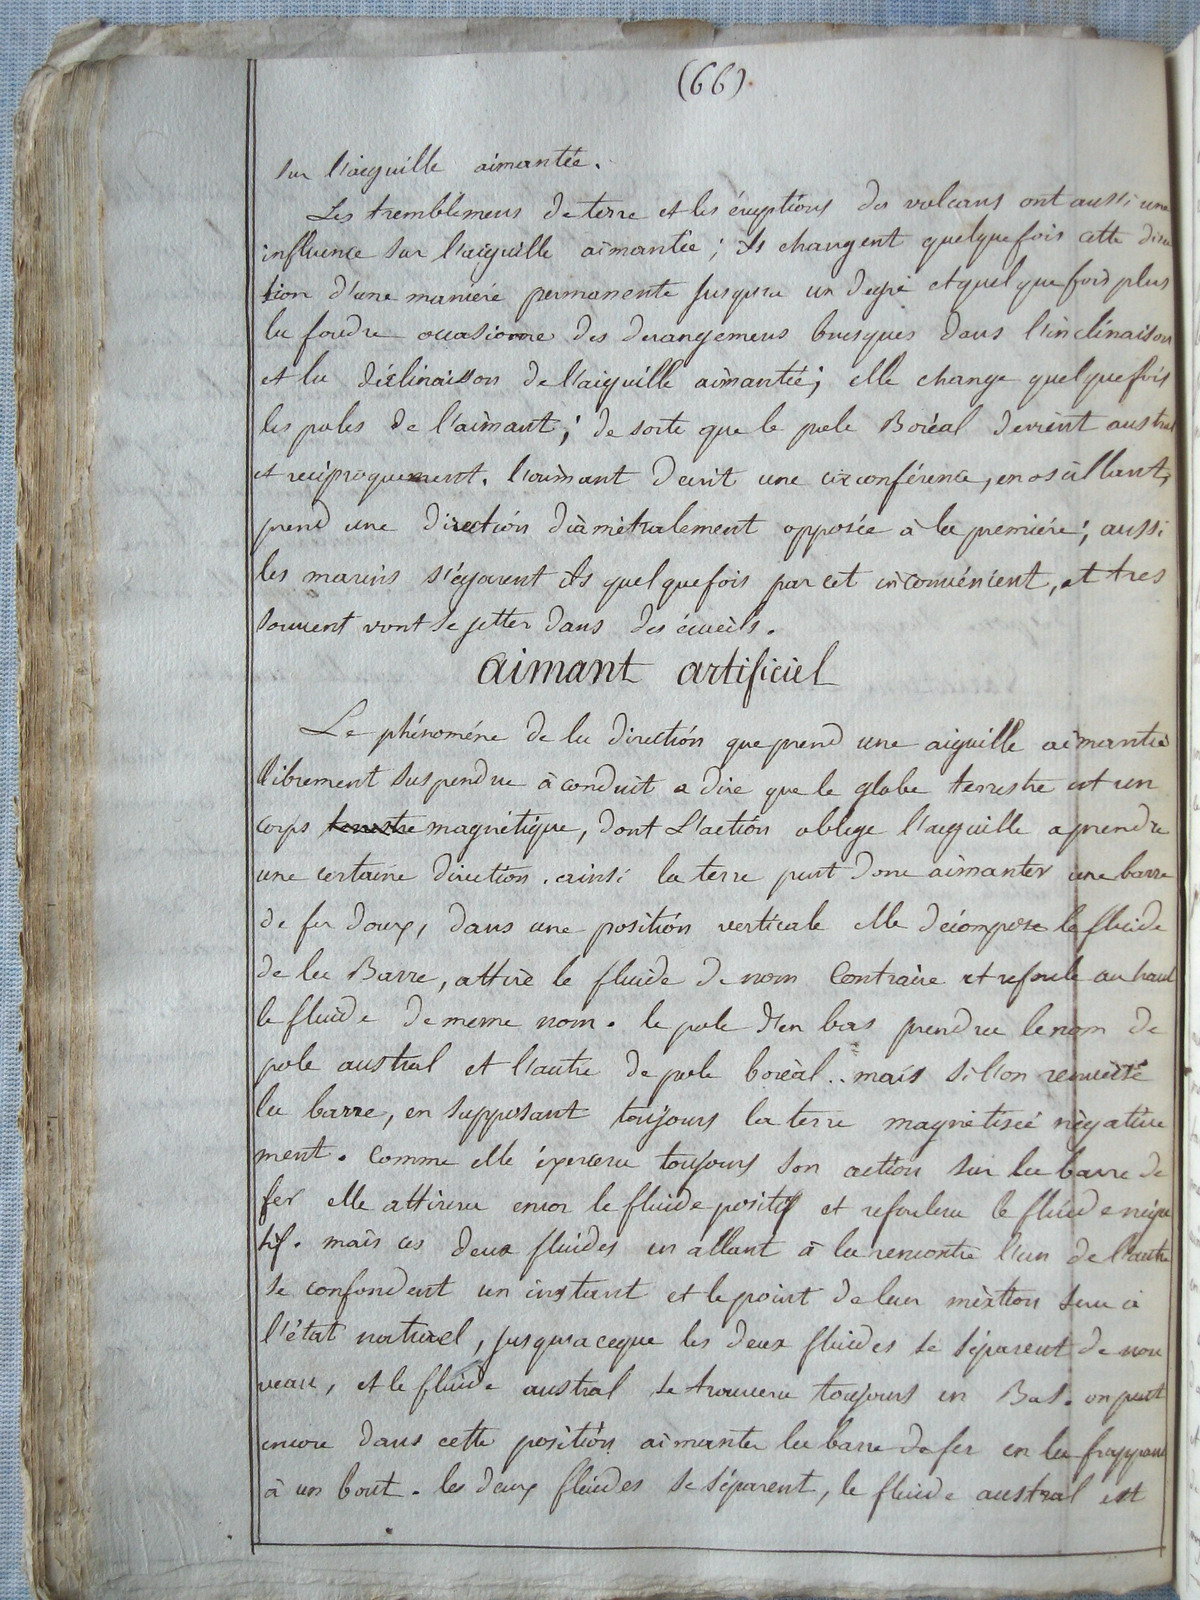 (66)
sur l'aiguille aimantée.
Les tremblemens de terre et les éruptions des volcans ont aussi une
influence sur l'aiguille aimantée; ils changent quelquefois cette direc
tion d'une maniére permanente jusqu'a un degré et quelquefois plus
la foudre occasionne des derangemens brusques dans l'inclinaison
et la déclinaison de l'aiguille aimantée; elle change quelquefois
les poles de l'aimant; de sorte que le pole Boréal devient austral
et reciproquement. l'aimant decrit une circonférence, en oscillant,
prend une direction diàmètralement opposée à la premiére; aussi
les marins s'égarent ils quelquefois par cet inconvénient, et tres
souvent vont se jetter dans des écueils.
aimant artificiel
Le phénoméne de la direction que prend une aiguille aimantée
librement suspendue à conduit a dire que le globe terrestre est un
corps terrestre magnétique, dont L'action oblige l'aiguille a prendre
une certaine direction. ainsi la terre peut donc aimanter une barre
de fer doux, dans une position verticale elle décompose le fluide
de la Barre, attire le fluide de nom Contraire et refoule au haut
le fluide de meme nom. le pole d'en bas prendra le nom de
pole austral et l'autre de pole boréal.. mais si l'on renverse
la barre, en supposant toujours la terre magnétisée négative
ment. Comme elle éxercera toujours son action sur la barre de
fer elle attirera encor le fluide positif et refoulera le fluide néga
tif. mais ces deux fluides en allant à la rencontre l'un de l'autre
se confondent un instant et le point de leur mixtion sera à
l'état naturel, jusqu'a ceque les deux fluides se séparent de nou
veau, et le fluide austral se trouvera toujours en Bas. on peut
encore dans cette position aimanter la barre de fer en la frappant
à un bout. les deux fluides se séparent, le fluide austral est